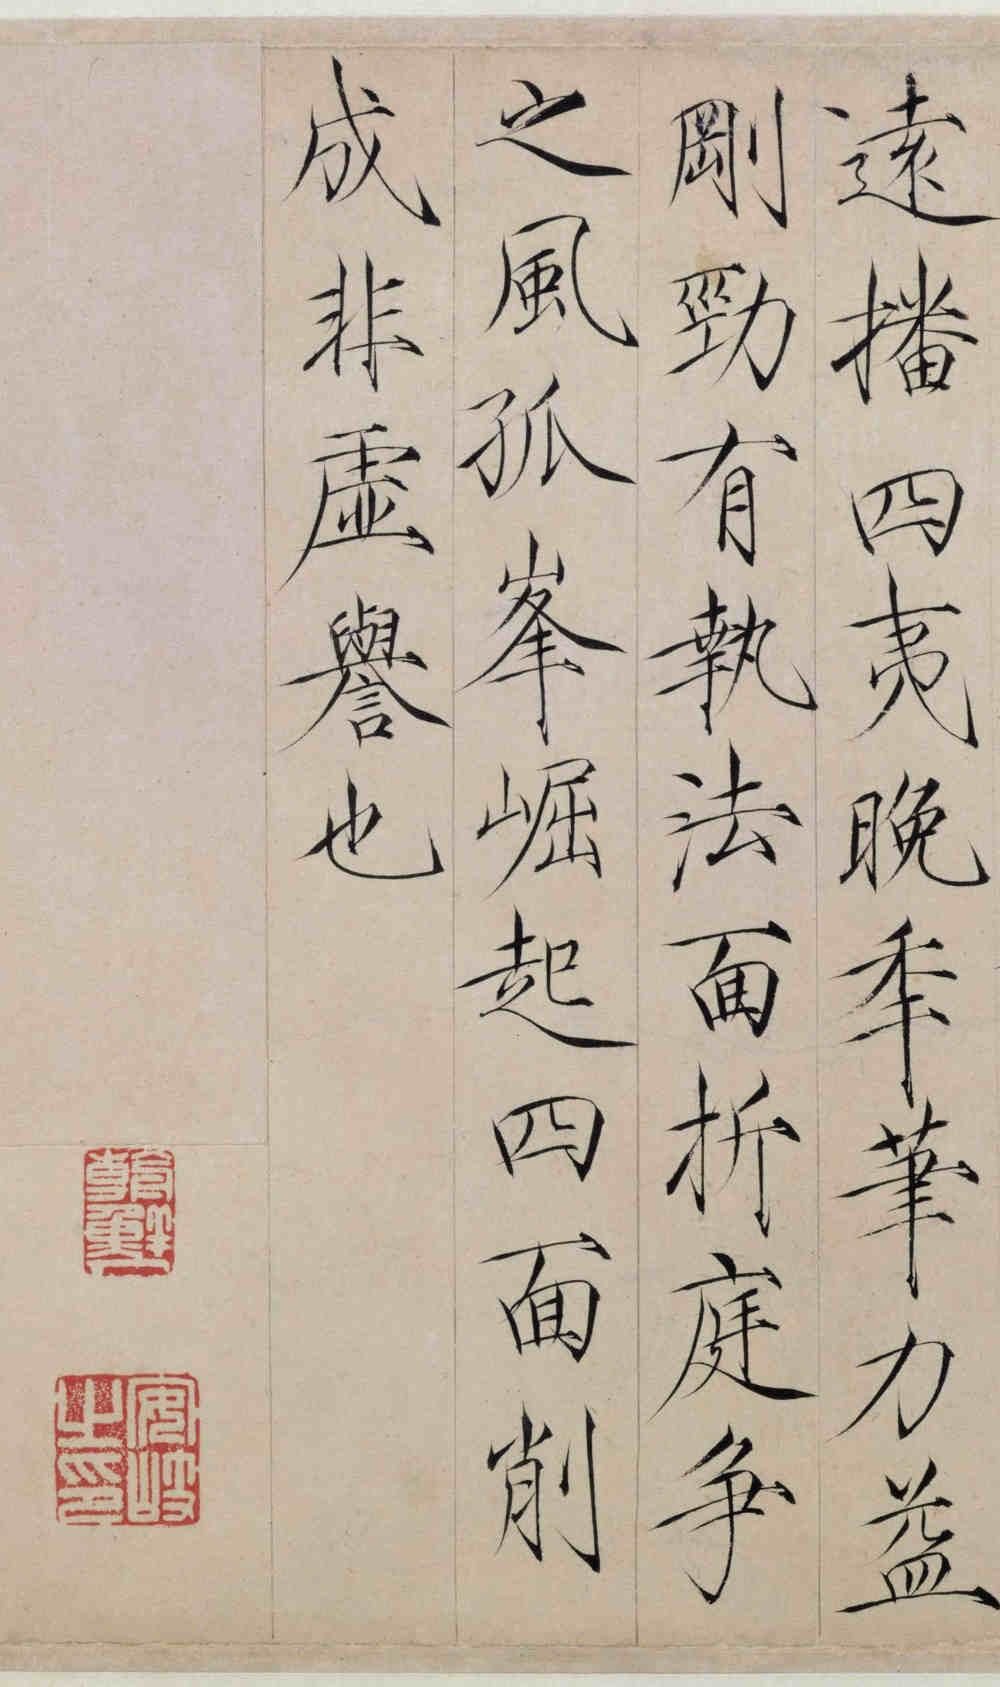 遠播四夷晚年筆力益
剛勁有執法面折庭爭
之風孤峯崛起四面削
成非虛譽也
安岐之印